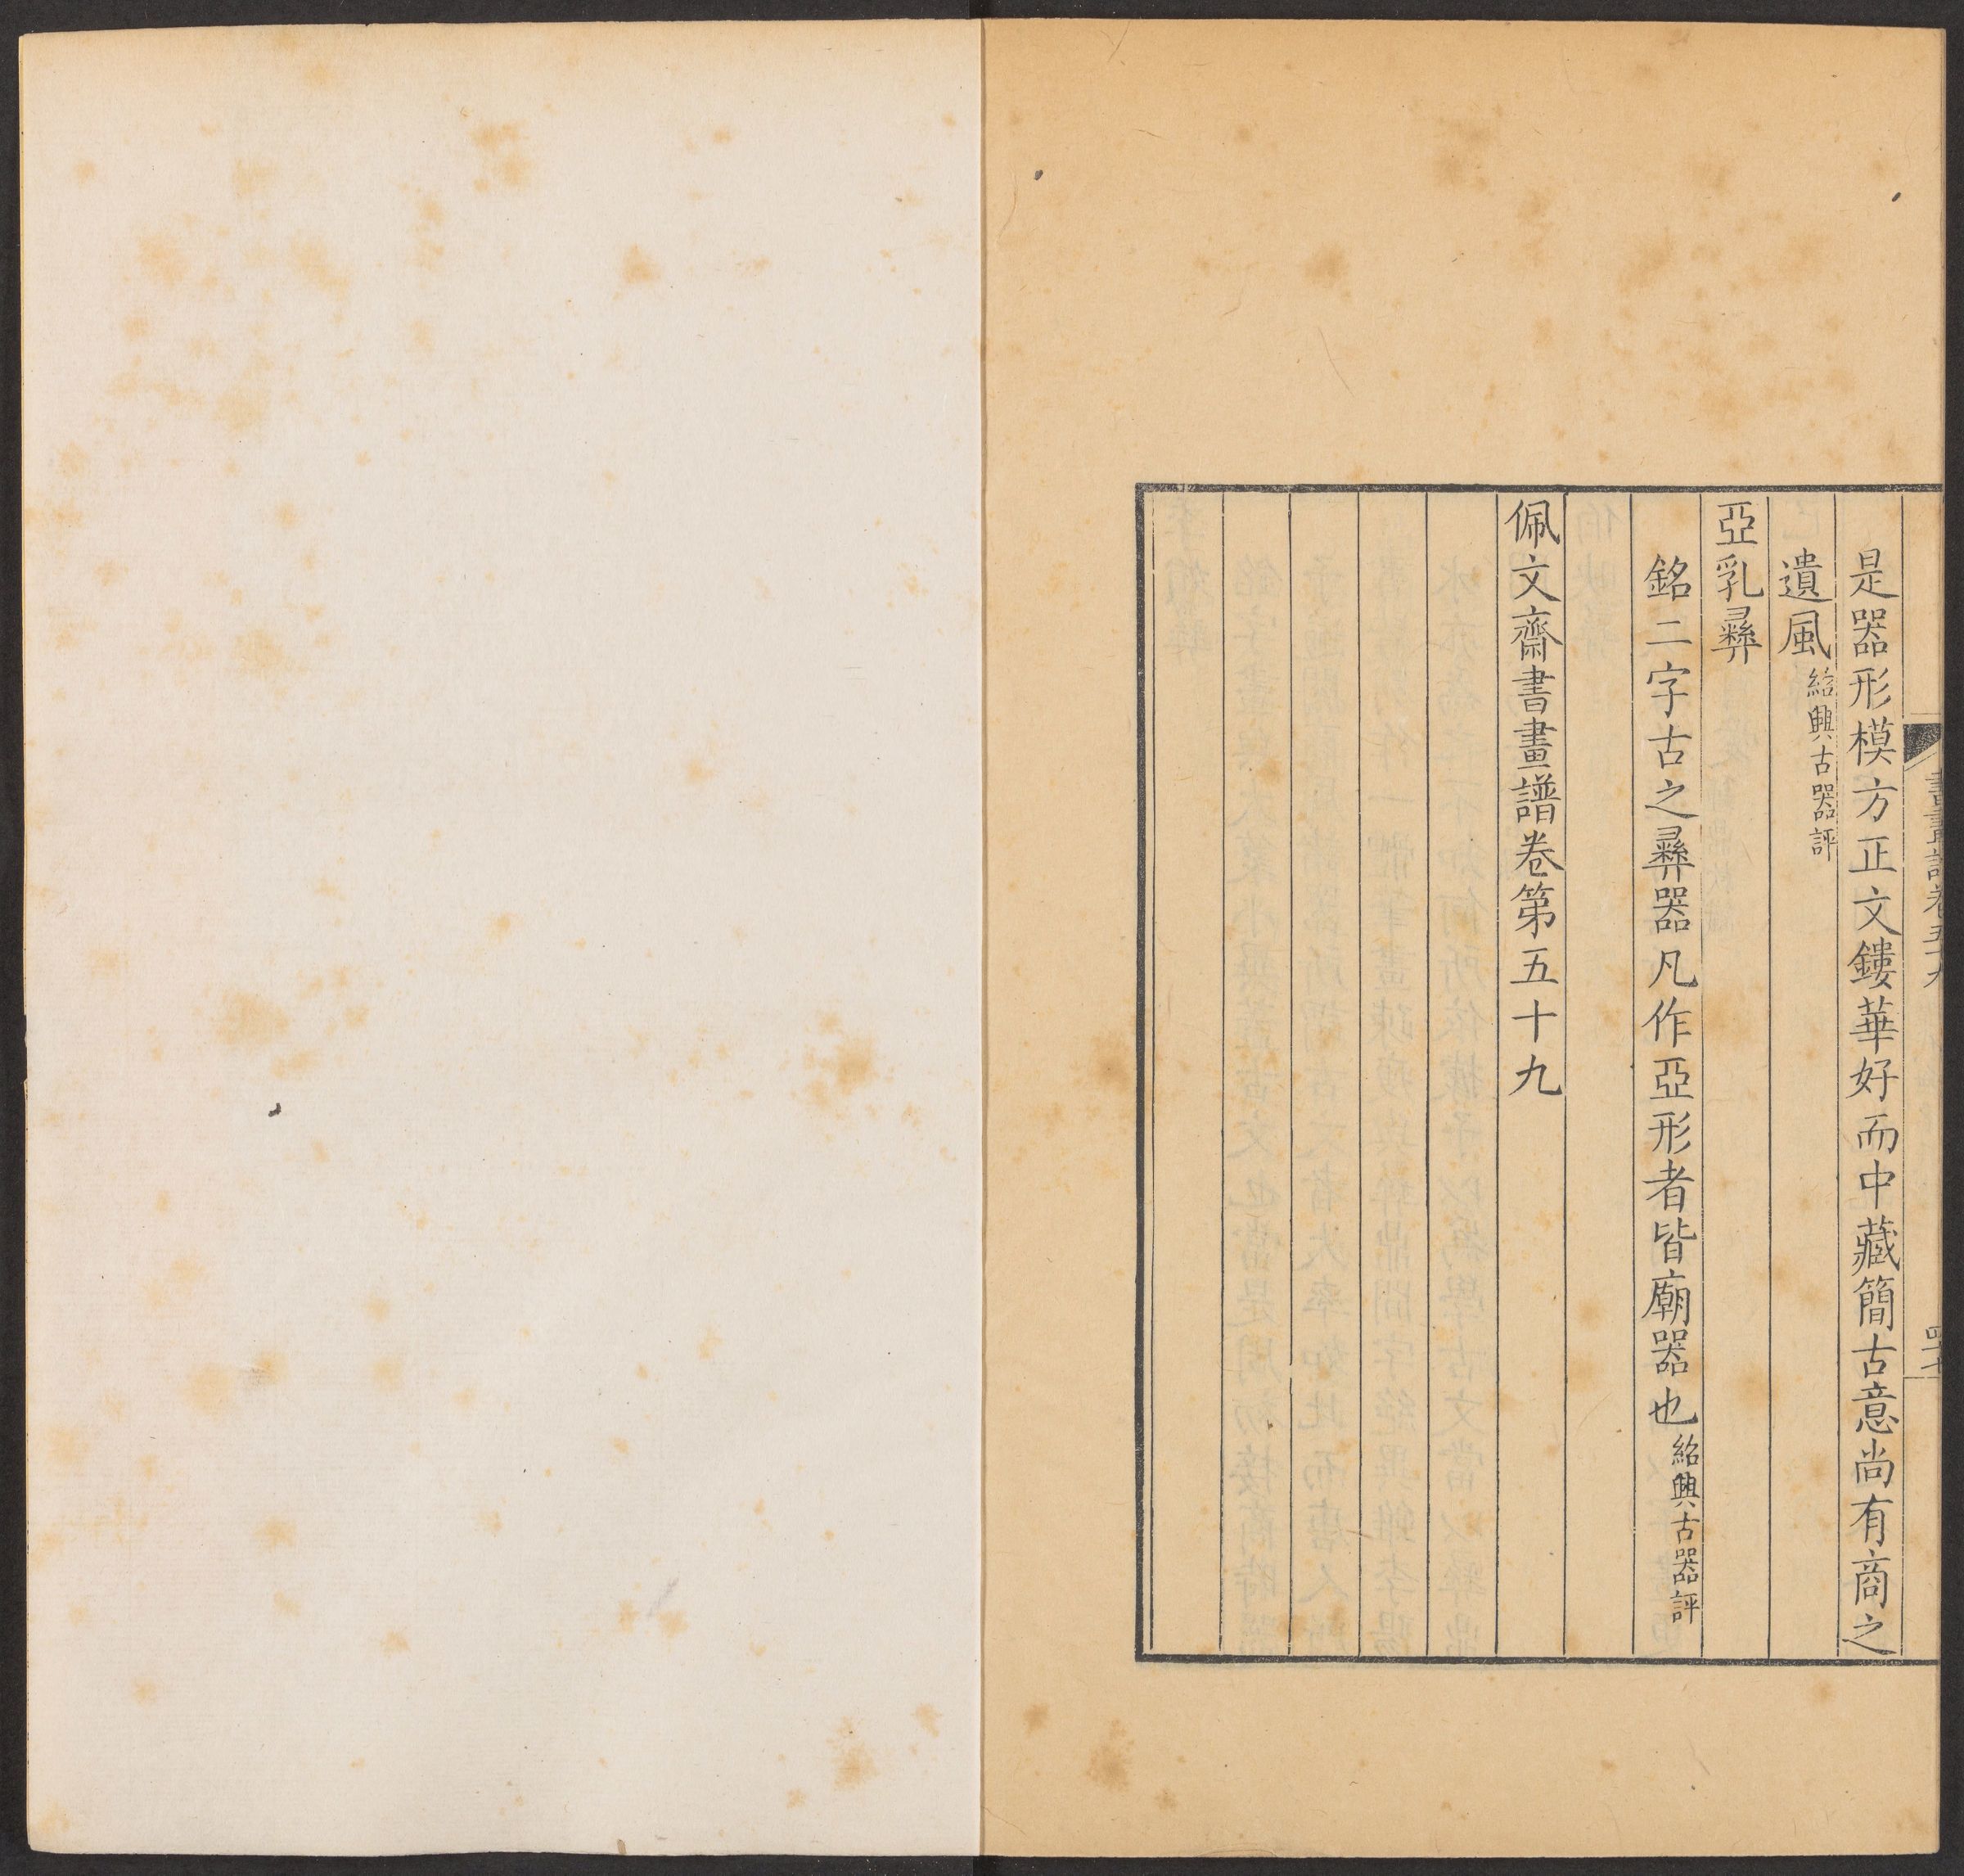 書畫譜卷五十九
四十七
是器形模方正文鏤華好而中藏簡古意尚有商之
遺風紹興古器評
亞乳彞
銘二字古之彞器凡作亞形者皆廟器也紹興古器評
佩文齋書畫譜卷第五十九